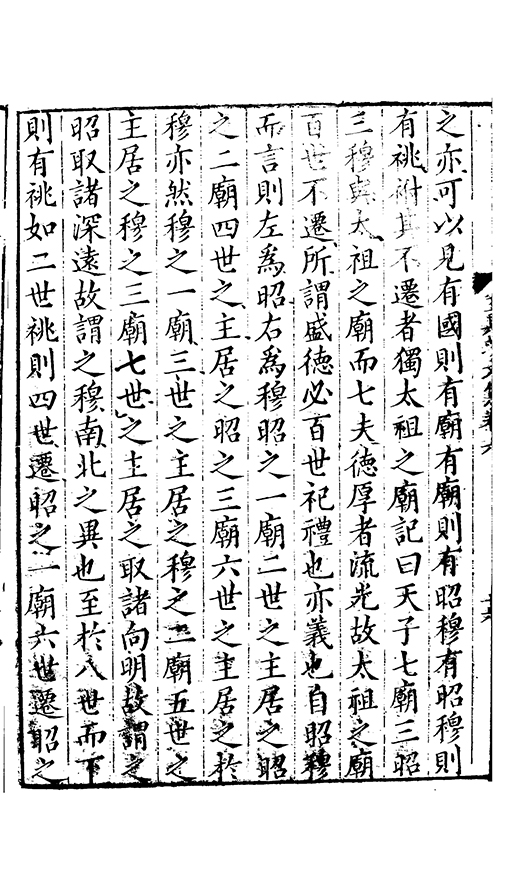 之亦可以見有國則有廟有廟則有昭穆有昭穆則
有祧祔其不遷者獨太祖之廟記曰天子七廟三昭
三穆與太祖之廟而七夫德厚者流光故太祖之廟
百世不遷所謂盛德必百世祀禮也亦義也自昭穆
而言則左爲昭右爲穆昭之一廟二世之主居之昭
之二廟四世之主居之昭之三廟六世之主居之於
穆亦然穆之一廟三世之主居之穆之二廟五世之
主居之穆之三廟七世之主居之取諸向明故謂之
昭取諸深遠故謂之穆南北之異也至於八世而下
則有祧如二世祧則四世遷昭之一廟六世遷昭之